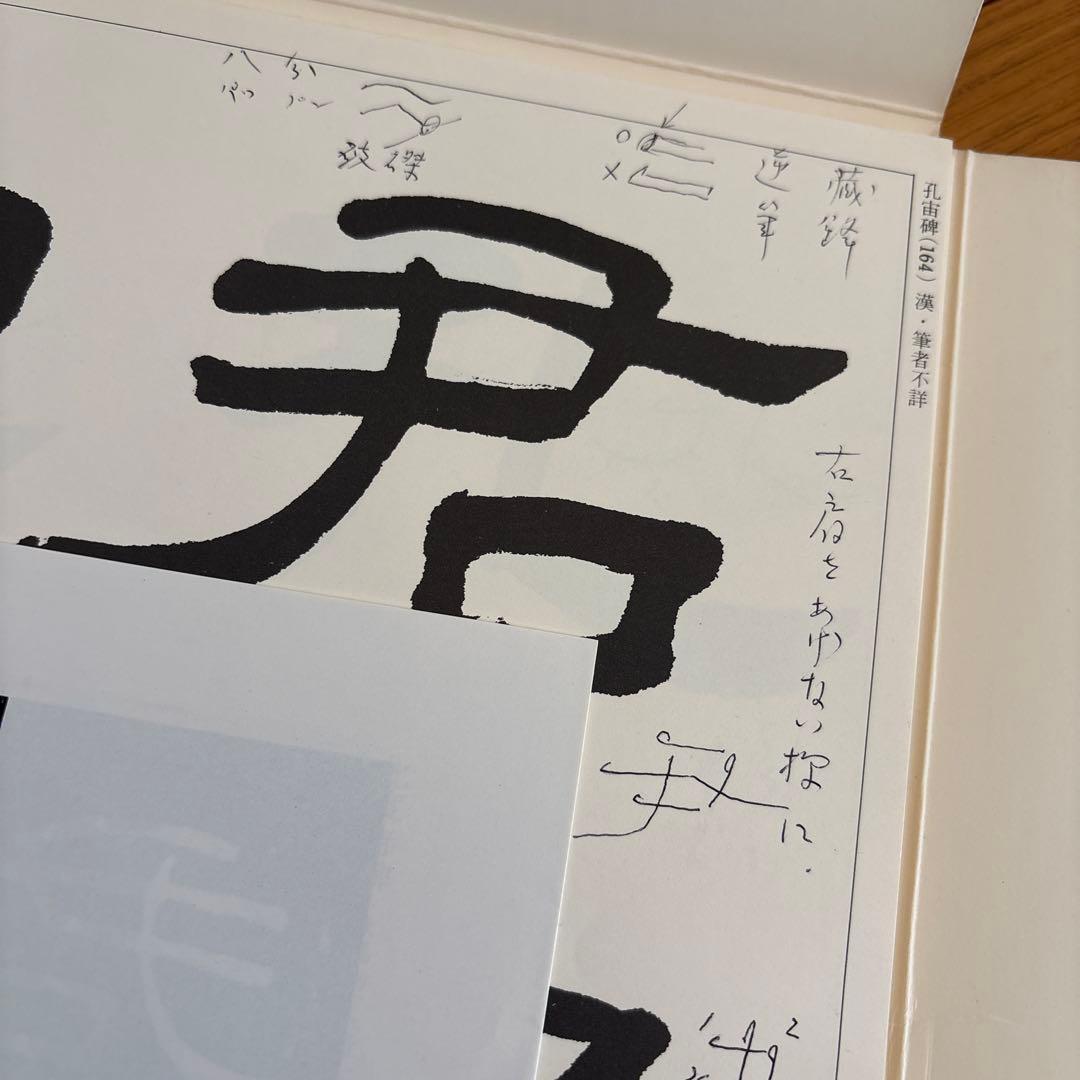 孔宙碑(164) 漢・筆者不詳
藏鋒
逆筆
○
×
八分
君
右肩をあげない様に.
1
2